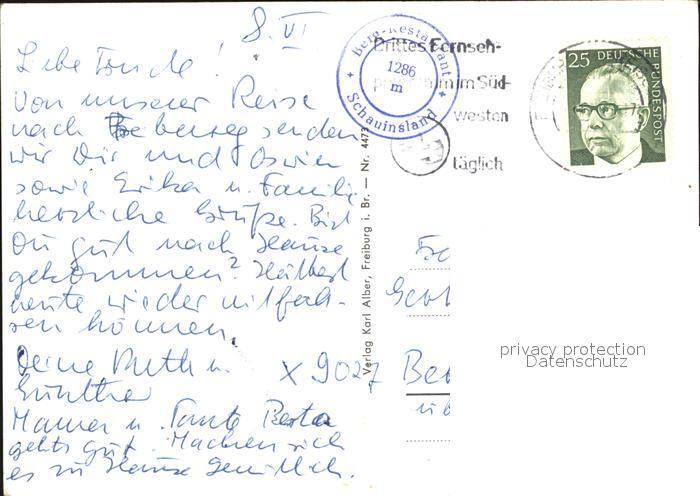 8. VI
Liebe Traude!
Von unserer Reise
nach Freiburg senden
wir Dir und
sowie Erika u. Familie
herzliche Grüße. Bist
Du gut nach Hause
gekommen? Hättest
heute wieder mitfah-
ren können.
Deine Ruth u.
Günther
Mama u. Tante Berta
gehts gut. Machen sich
es zu Hause gemütlich.
Berg-Restaurant
1286
m
Schauinsland
Drittes Fernseh-
programm im Süd-
westen
täglich
25 DEUTSCHE
BUNDESPOST
Verlag Karl Alber, Freiburg i. Br. — Nr. 4473
X 9027
privacy protection
Datenschutz